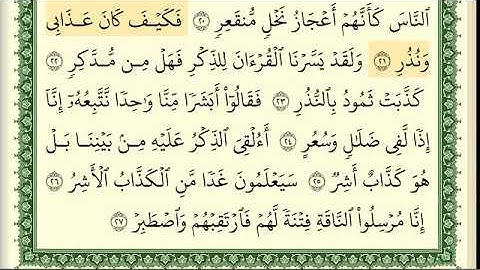 ٱلنَّاسَ كَأَنَّهُمْ أَعْجَازُ نَخْلٍ مُّنقَعِرٍ ٢٠ فَكَيْفَ كَانَ عَذَابِى
وَنُذُرِ ٢١ وَلَقَدْ يَسَّرْنَا ٱلْقُرْءَانَ لِلذِّكْرِ فَهَلْ مِن مُّدَّكِرٍ ٢٢
كَذَّبَتْ ثَمُودُ بِٱلنُّذُرِ ٢٣ فَقَالُوٓا۟ أَبَشَرًا مِّنَّا وَٰحِدًا نَّتَّبِعُهُۥٓ إِنَّآ
إِذًا لَّفِى ضَلَٰلٍ وَسُعُرٍ ٢٤ أَءُلْقِىَ ٱلذِّكْرُ عَلَيْهِ مِنۢ بَيْنِنَا بَلْ
هُوَ كَذَّابٌ أَشِرٌ ٢٥ سَيَعْلَمُونَ غَدًا مَّنِ ٱلْكَذَّابُ ٱلْأَشِرُ ٢٦
إِنَّا مُرْسِلُوا۟ ٱلنَّاقَةِ فِتْنَةً لَّهُمْ فَٱرْتَقِبْهُمْ وَٱصْطَبِرْ ٢٧